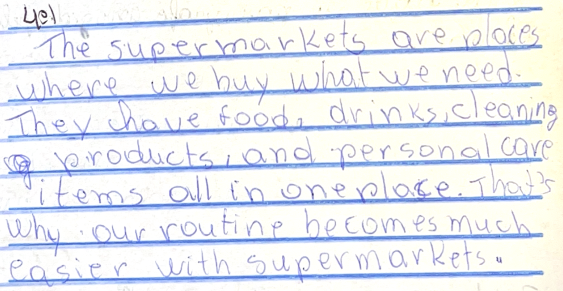 4e)
The supermarkets are places
where we buy what we need.
They have food, drinks, cleaning
products, and personal care
items all in one place. That's
why our routine becomes much
easier with supermarkets.